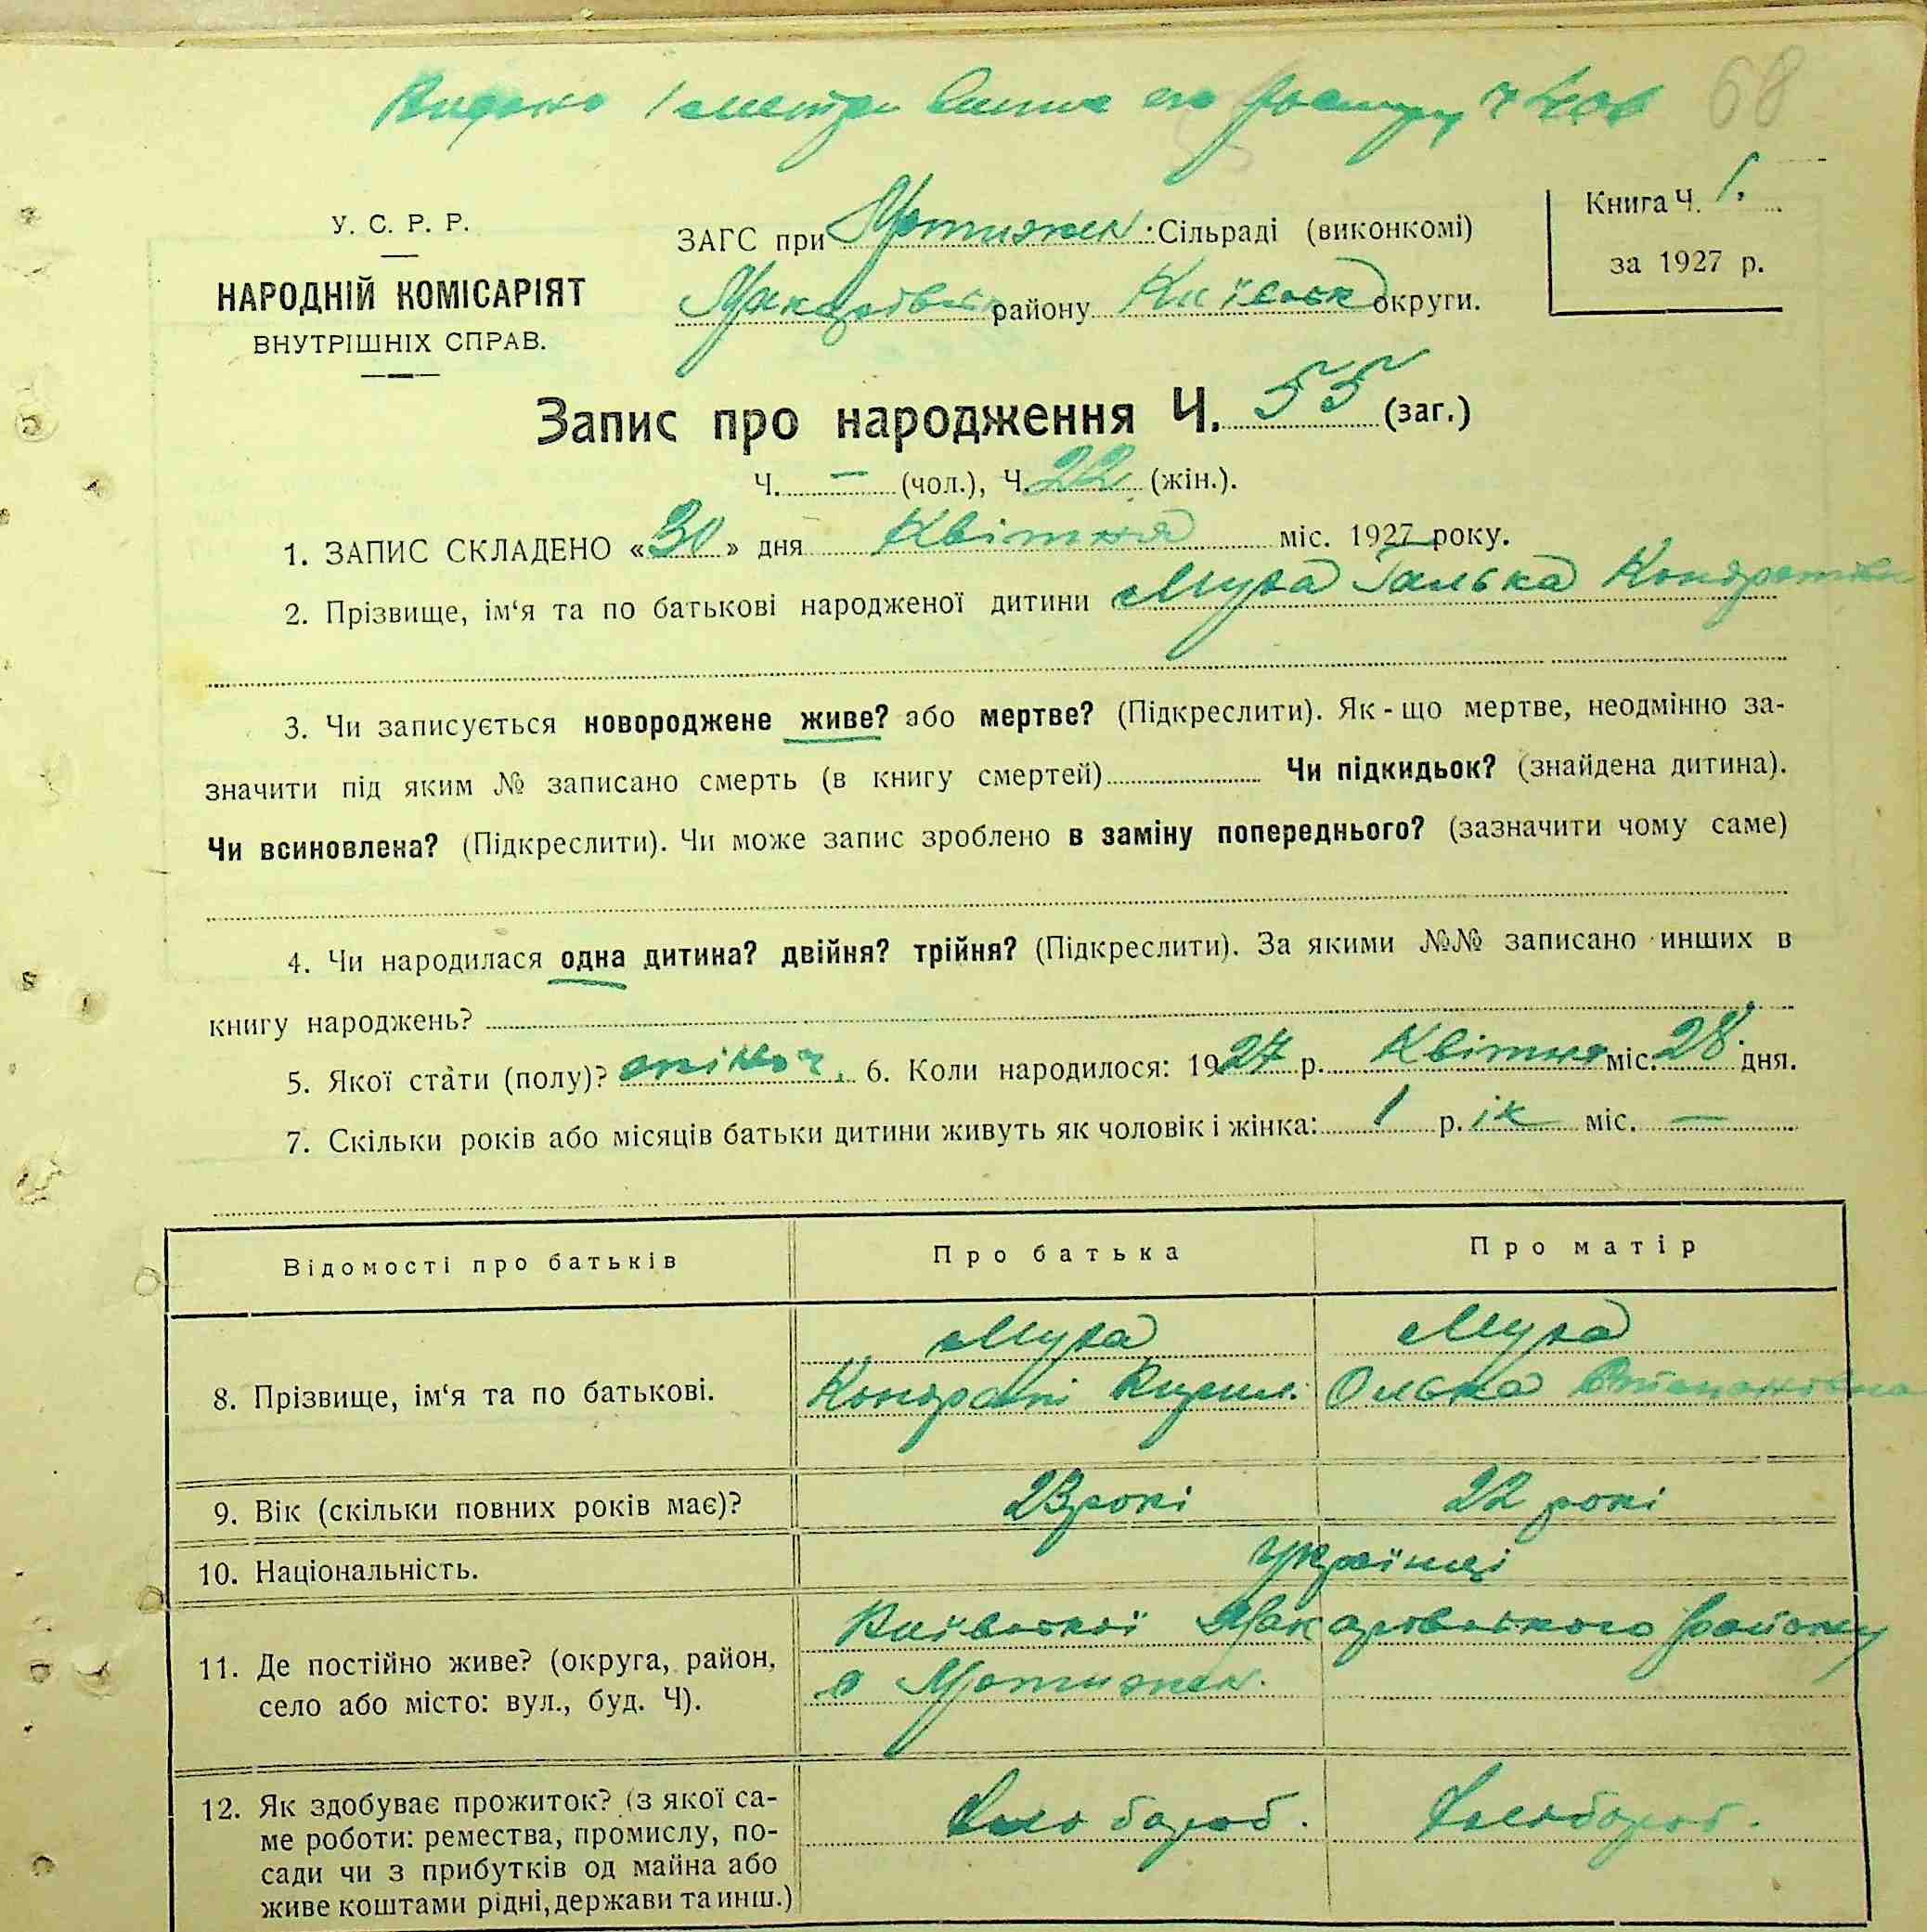 68
У. С. Р. Р.
НАРОДНІЙ КОМІСАРІЯТ
ВНУТРІШНІХ СПРАВ.
ЗАГС при Мотижен. Сільраді (виконкомі)
Макарівськ району Київськ округи.
Книга Ч. 1.
за 1927 р.
Запис про народження Ч. 55 (заг.)
Ч. — (чол.), Ч. 22 (жін.).
1. ЗАПИС СКЛАДЕНО «30» дня Квітня міс. 1927 року.
2. Прізвище, ім‘я та по батькові народженої дитини Муха Галька Кондратівн
3. Чи записується новороджене живе? або мертве? (Підкреслити). Як-що мертве, неодмінно за-
значити під яким № записано смерть (в книгу смертей) Чи підкидьок? (знайдена дитина).
Чи всиновлена? (Підкреслити). Чи може запис зроблено в заміну попереднього? (зазначити чому саме)
4. Чи народилася одна дитина? двійня? трійня? (Підкреслити). За якими №№ записано инших в
книгу народжень?
5. Якої стати (полу)? жіноч. 6. Коли народилося: 1927 р. Квітня міс. 28 дня.
7. Скільки років або місяців батьки дитини живуть як чоловік і жінка: 1 р.ік міс. —
Відомості про батьків Про батька Про матір
Муха Муха
8. Прізвище, ім‘я та по батькові. Кондрат Кирил. Олька Степановна
9. Вік (скільки повних років має)? 23 рокі 22 рокі
10. Національність. Українці
Київської Макарівського району
11. Де постійно живе? (округа, район, с Мотижен.
село або місто: вул., буд. Ч).
12. Як здобуває прожиток? (з якої са- Хлібороб. Хлібороб.
ме роботи: ремества, промислу, по-
сади чи з прибутків од майна або
живе коштами рідні, держави та инш.)